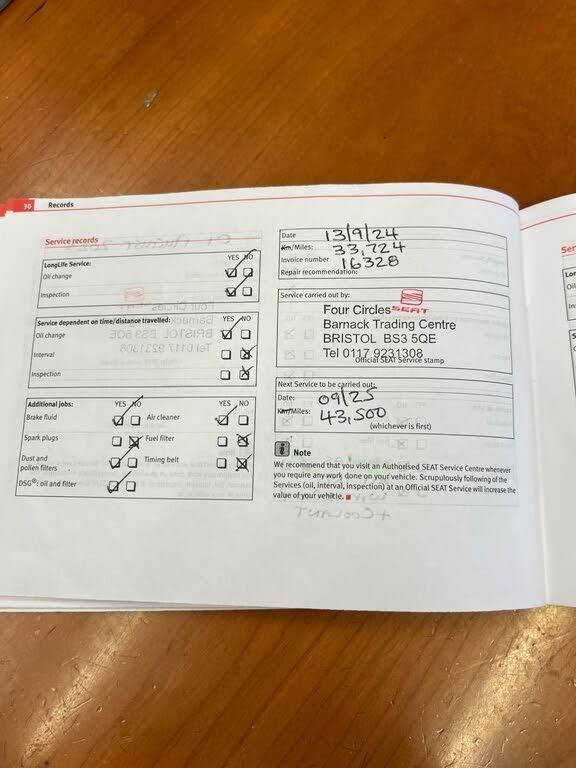 30 Records
Service records
LongLife Service:
YES NO
Oil change
Inspection
Service dependent on time/distance travelled:
YES NO
Oil change
Interval
Inspection
Additional jobs:
YES NO
YES NO
Brake fluid
Air cleaner
Spark plugs
Fuel filter
Dust and
pollen filters
Timing belt
DSG®: oil and filter
Date 13/9/24
Km/Miles: 33,724
Invoice number 16328
Repair recommendation:
Service carried out by:
Four Circles SEAT
Barnack Trading Centre
BRISTOL BS3 5QE
Tel 0117 9231308
Official SEAT Service stamp
Next Service to be carried out:
Date: 09/25
Km/Miles: 43,500
(whichever is first)
i Note
We recommend that you visit an Authorised SEAT Service Centre whenever
you require any work done on your vehicle. Scrupulously following of the
Services (oil, interval, inspection) at an Official SEAT Service will increase the
value of your vehicle.